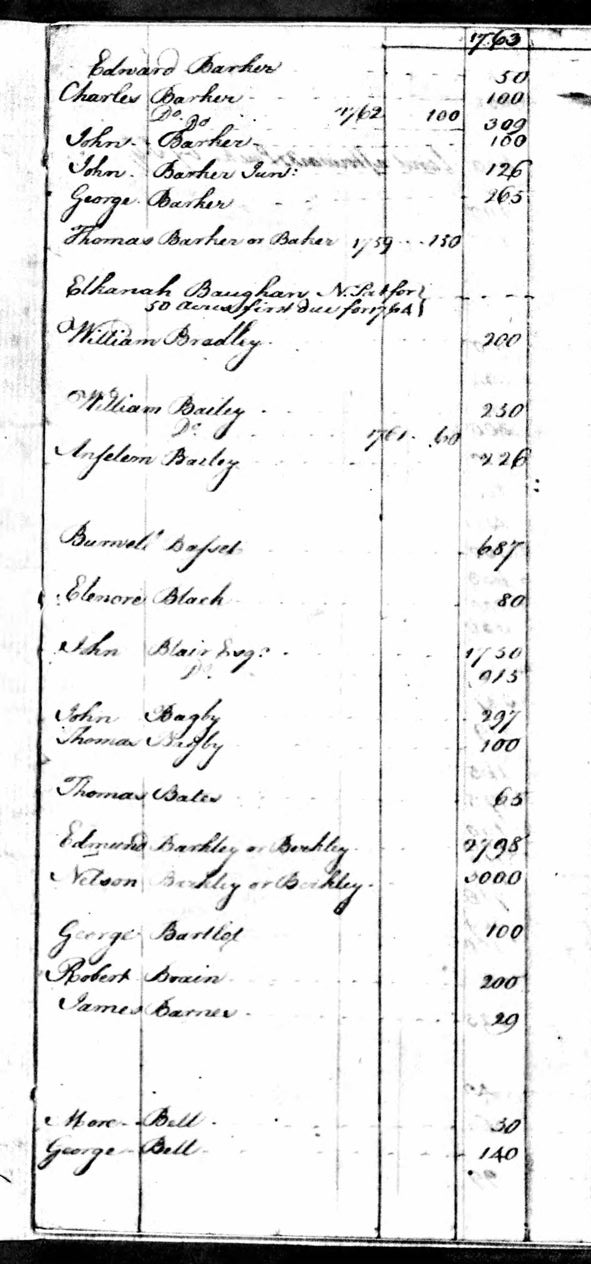 1763
Edward Barker 50
Charles Barker 100
Do Do 1762 100 309
John Barker 100
John Barker Jun: 126
George Barker 265
Thomas Barker or Baker 1759 150
Elkanah Baughan N. Pat for
50 acres first due for 1764
William Bradley 200
William Bailey 250
Do 1761 60
Anselem Bailey 226
Burwell Basset 687
Elenore Black 80
John Blair Esqr 1750
Do 915
John Bagby 297
Thomas Bagby 100
Thomas Bates 65
Edmund Barkley or Berkley 2798
Nelson Berkley or Berkley 3000
George Bartlet 100
Robert Brain 200
James Barnes 29
More Bell 50
George Bell 140